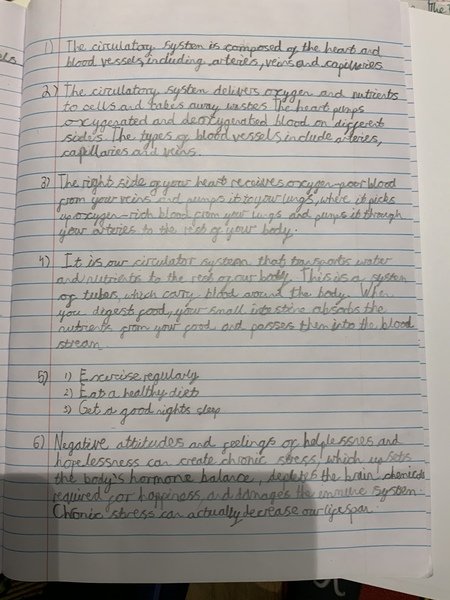 1) The circulatory system is composed of the heart and
blood vessels, including arteries, veins and capillaries
2) The circulatory system delivers oxygen and nutrients
to cells and takes away wastes. The heart pumps
oxygenated and deoxygenated blood on different
sides. The types of blood vessels include arteries,
capillaries and veins.
3) The right side of your heart receives oxygen-poor blood
from your veins and pumps it to your lungs, where it picks
up oxygen-rich blood from your lungs and pumps it through
your arteries to the rest of your body.
4) It is our circulatory system that transports water
and nutrients to the rest of our body. This is a system
of tubes, which carry blood around the body. When
you digest food, your small intestine absorbs the
nutrients from your food and passes them into the blood
stream.
5) 1) Excerise regularly
2) Eat a healthy diet
3) Get a good nights sleep
6) Negative attitudes and feelings of helplessness and
hopelessness can create chronic stress, which upsets
the body's hormone balance, depletes the brain chemicals
required for happiness, and damages the immune system.
Chronic stress can actually decrease our lifespan.